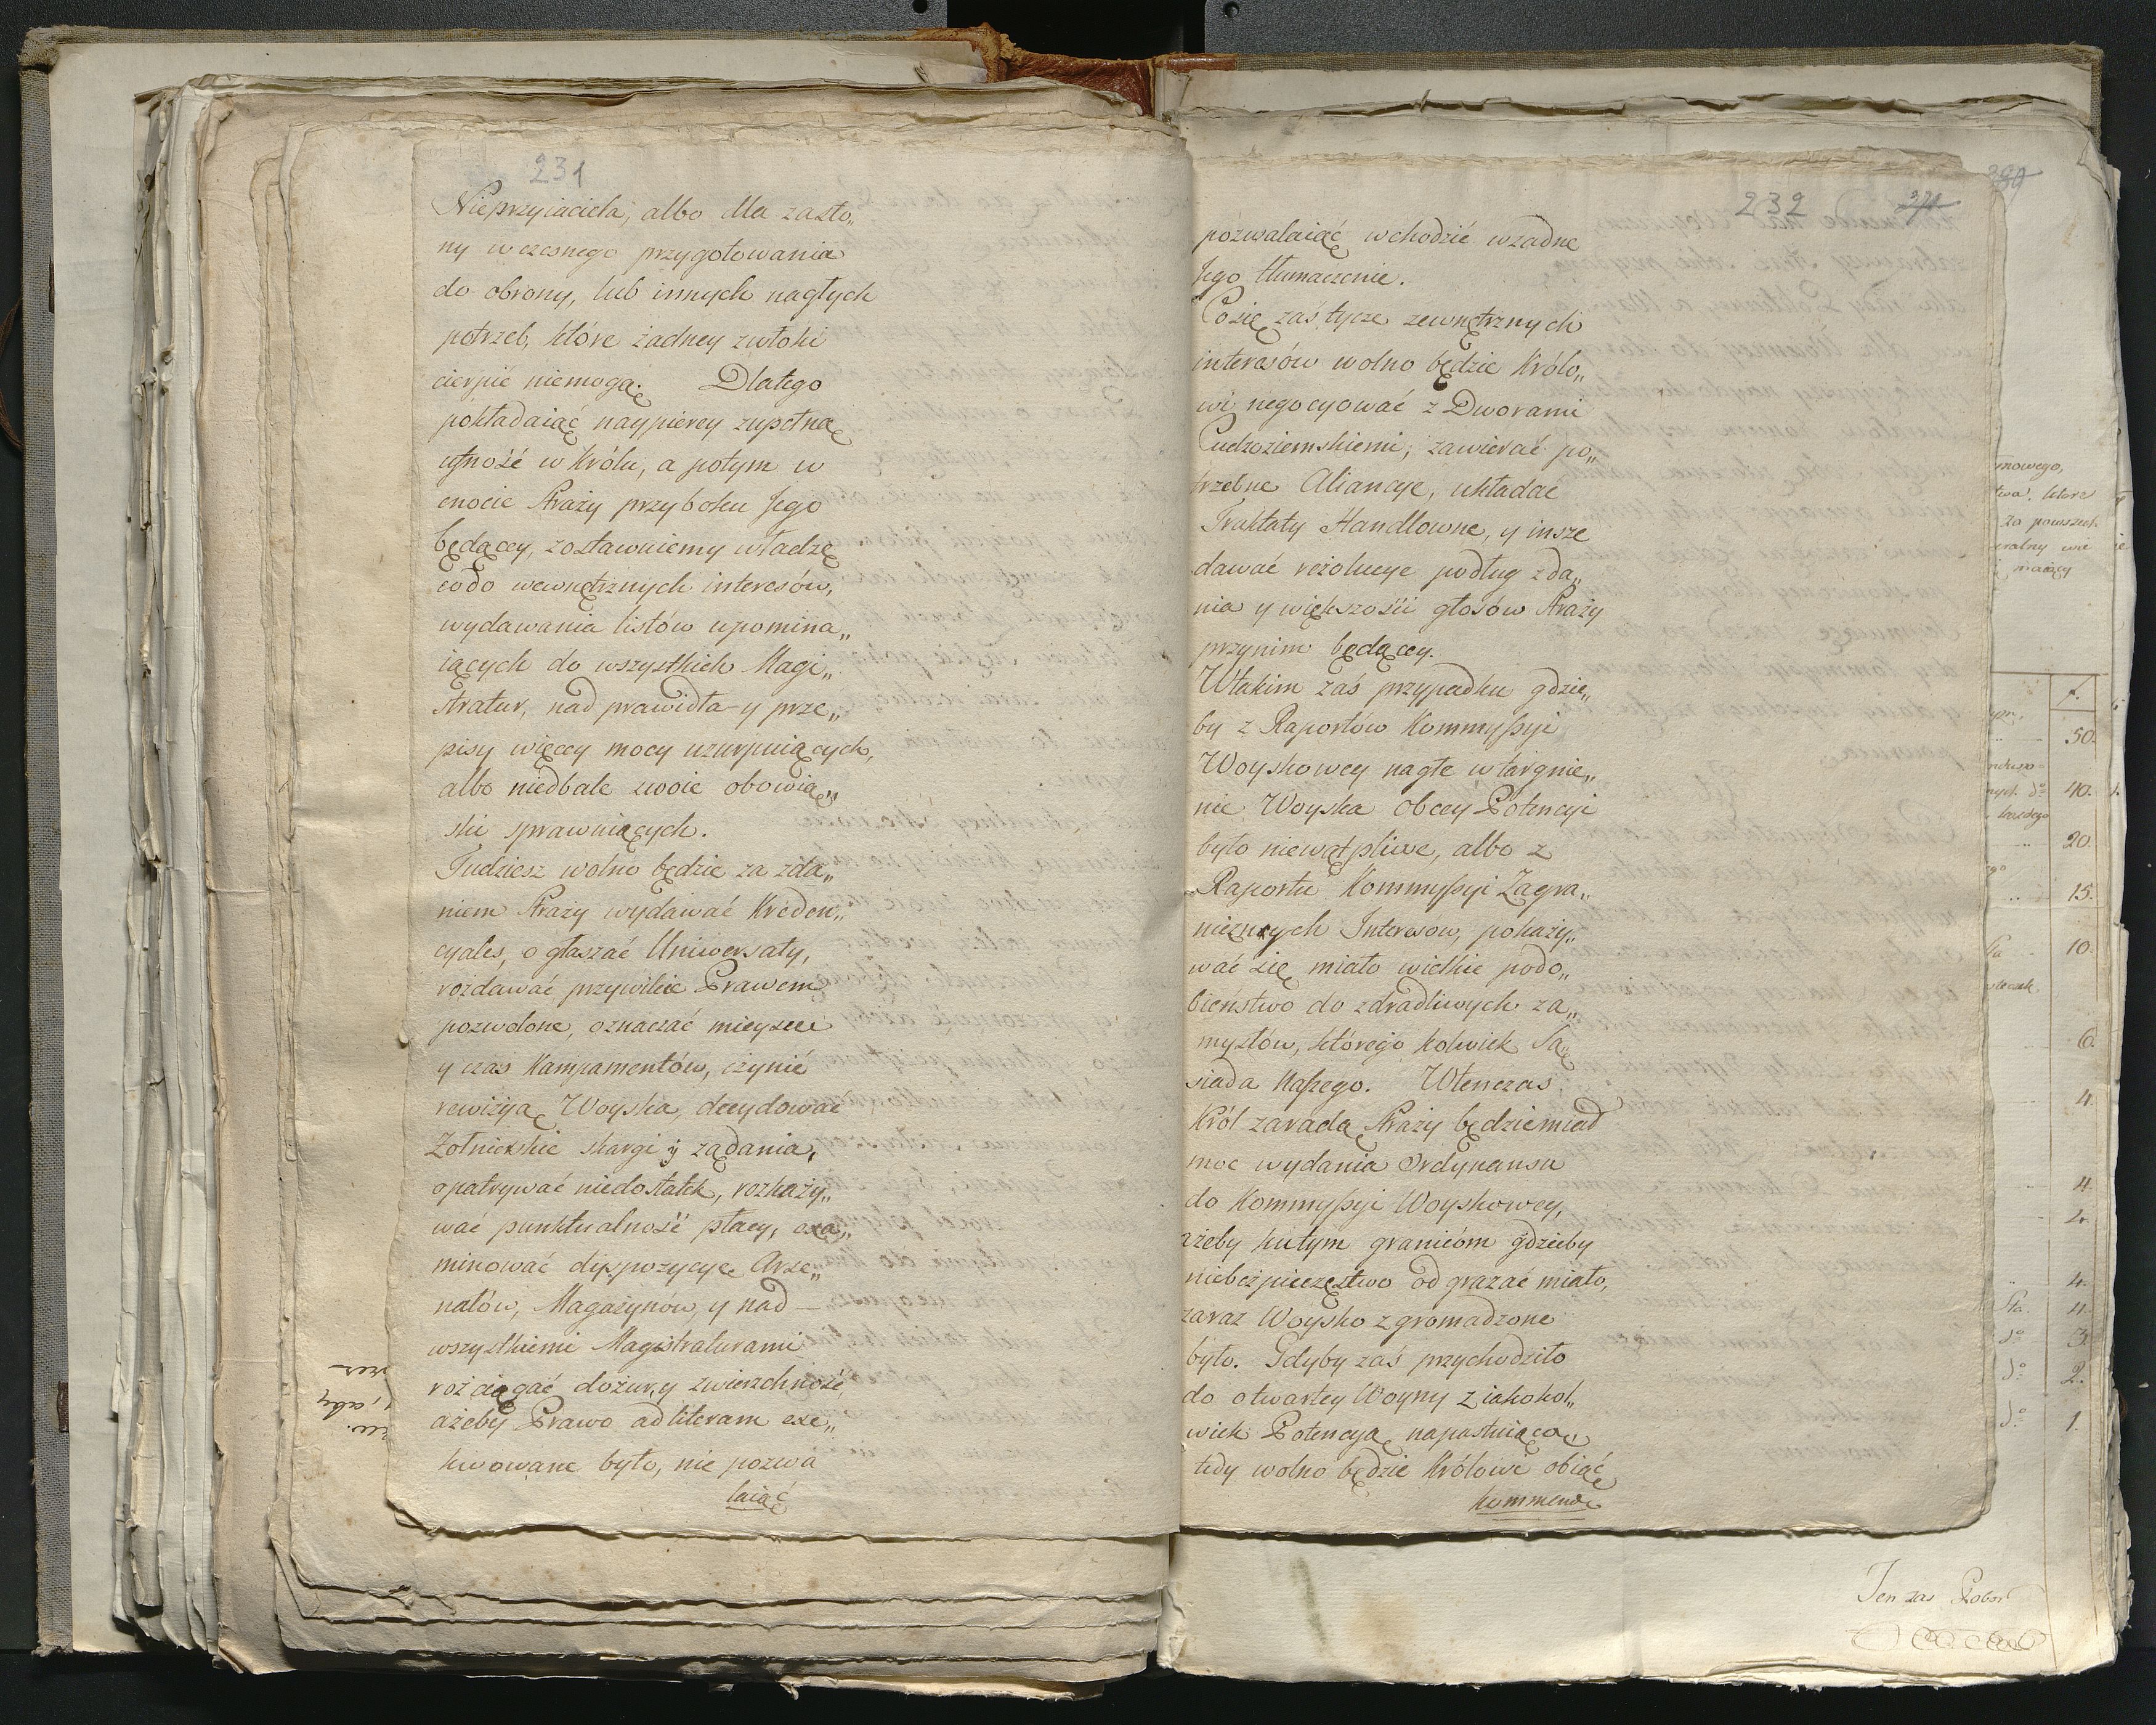 231
Nieprzyiaciela, albo dla zasło„
ny wczesnego przygotowania
do obrony, lub innych nagłych
potrzeb, które żadney zwłoki
cierpić niemogą. Dlatego
pokładaiąć naypierey zupełną
ufność w Królu, a potym w
cnocie Straży przyboku Jego
będącey, zostawuiemy władzę
codo wewnętrznych interesów,
wydawania listów upomina„
iących do wszystkich Magi„
stratur, nad prawidła y prze„
pisy więcey mocy uzurpuiących,
albo niedbale swoie obowią„
ski sprawuiących.
Tudziesz wolno będzie za zda„
niem Straży wydawać Kreden„
cyales, ogłaszać Uniwersały,
rozdawać przywileie Prawem
pozwolone, oznaczać mieysce
y czas Kampamentów, czynić
rewizyą Woyska, decydować
Zołnierskie skargi y ządania,
opatrywać niedostatek, rozkazy„
wać punktualność płacy, exa„
minować dyspozycye Arse„
nałów, Magazynów, y nad —
wszystkiemi Magistraturami
rozciągać dozur, y zwierzchność
ażeby Prawo ad literam exe„
kwowane było, nie pozwa
laiąć
232
pozwalaiąć wchodzić wzadne
Jego tłumaczenie.
Cosię zaś tycze zewnętrznych
interesów wolno będzie Królo„
wi negocyować z Dworami
Cudzoziemskiemi, zawierać po„
trzebne Aliancye, układac
Traktaty Handlowne, y insze
dawać rezolucye podług zda„
nia y większości głosów Straży
przynim będącey.
Wtakim zaś przypadku gdzie„
by z Raportów Kommyßyi
Woyskowey nagłe wtargnie„
nie Woyska obcey Potencyi
było niewątpliwe, albo z
Raportu Kommyßyi Zagra„
nicznych Interesow, pokazy„
wać się miało wielkie podo„
bieństwo do zdradliwych za„
mysłów, którego kolwiek Są
siada Naßego. Wtenczas
Król zaradą Straży będziemiał
moc wydania Ordynansu
do Kommyßyi Woyskowey,
ażeby kutym granicóm gdzieby
niebezpieczęstwo odgrazać miało,
zaraz Woysko zgromadzone
było. Gdyby zaś przychodziło
do otwartey Woyny z iakokol„
wiek Potencyą napastuiącą
tedy wolno będzie Królowi obiąć
kommendę
mowego,
twa, które
za powszech
eralny wie
maiący
f.
50.
40.
każdego
20.
15.
10.
6.
4.
4.
2.
4.
4.
3.
2.
1.
Ten zas Pobor